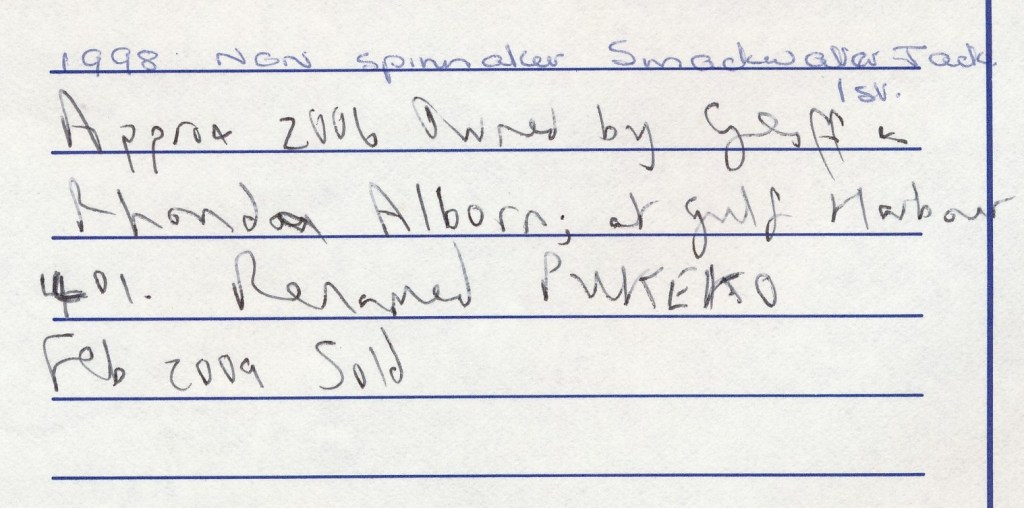 1998 Non spinmaker Smackwater Jack
1st.
Approx 2006 Owned by Geoff &
Rhondaa Alborn; at Gulf Harbour
401. Renamed PUKEKO
Feb 2009 Sold